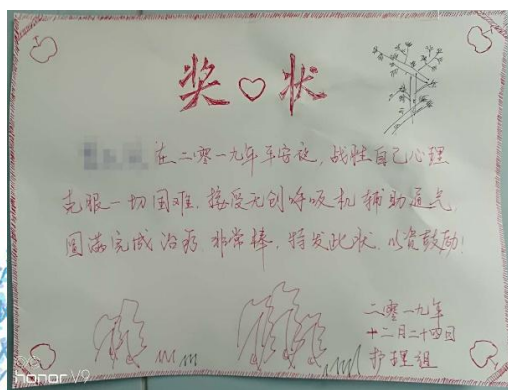 奖♡状
在二零一九年平安夜,战胜自己心理
克服一切困难,接受无创呼吸机辅助通气,
圆满完成治疗,非常棒,特发此状,以资鼓励!
二零一九年
十二月二十四日
护理组
honor V9